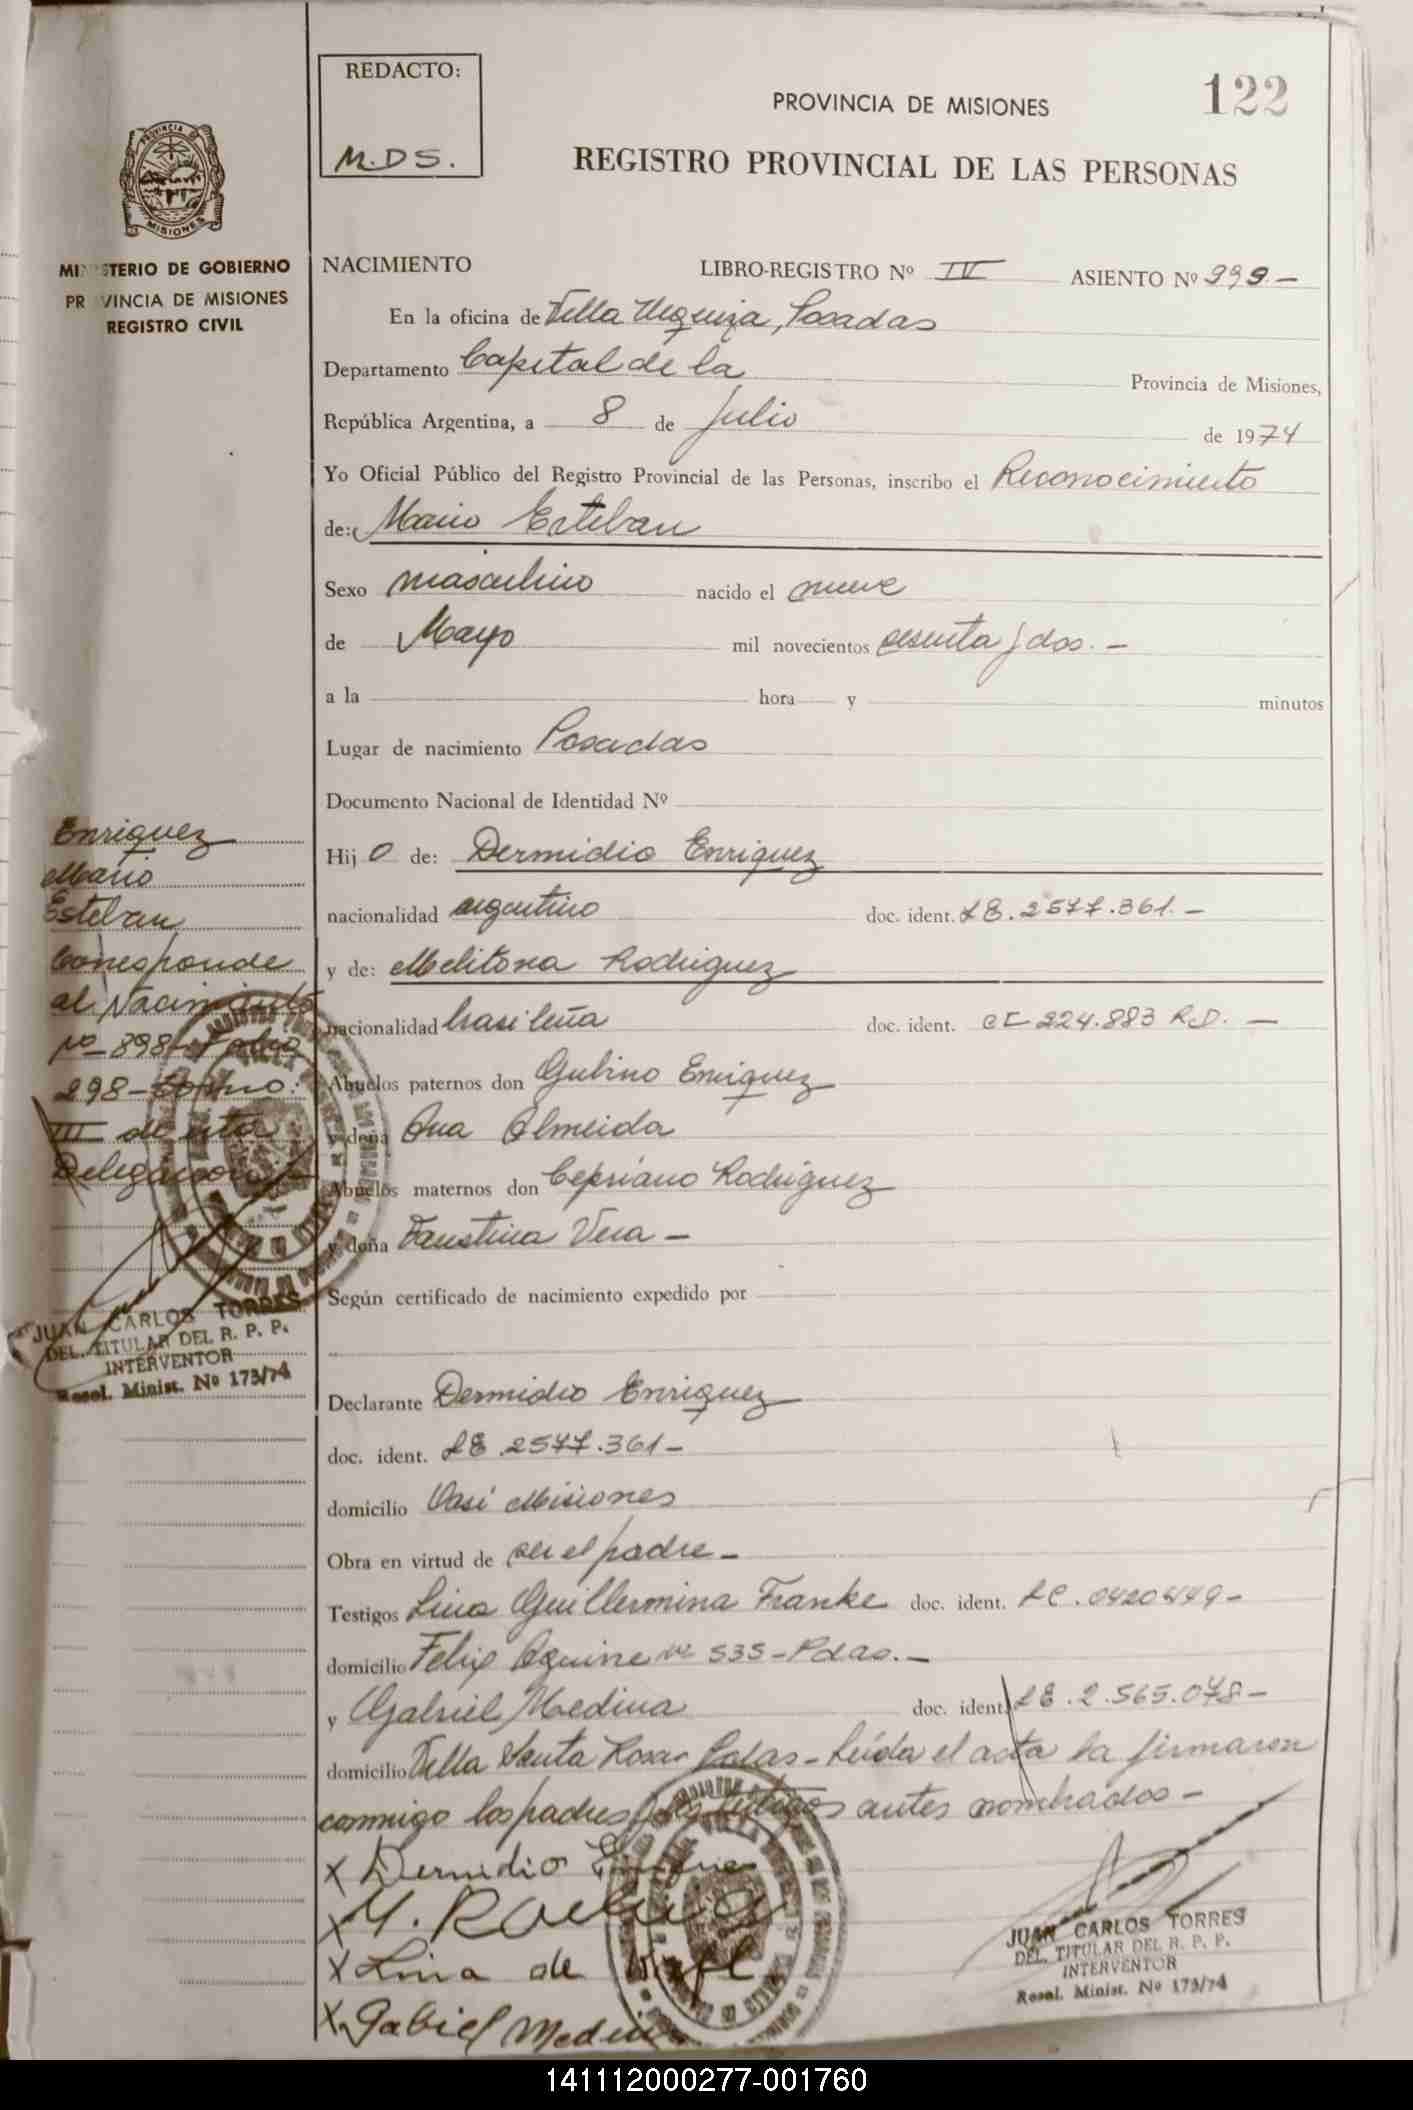 REDACTO:
M.D.S.
122
PROVINCIA DE MISIONES
REGISTRO PROVINCIAL DE LAS PERSONAS
MISIONES
MINISTERIO DE GOBIERNO
PROVINCIA DE MISIONES
REGISTRO CIVIL
NACIMIENTO LIBRO-REGISTRO Nº IV ASIENTO Nº 999.-
En la oficina de Villa Urquiza, Posadas
Departamento Capital de la Provincia de Misiones,
República Argentina, a 8 de Julio de 1974
Yo Oficial Público del Registro Provincial de las Personas, inscribo el Reconocimiento
de: Mario Esteban
Sexo masculino nacido el nueve
de Mayo mil novecientos sesenta y dos.-
a la hora y minutos
Lugar de nacimiento Posadas
Documento Nacional de Identidad Nº
Hijo de: Dermidio Enriquez
nacionalidad argentino doc. ident. LE. 2577.361.-
y de: Melitona Rodriguez
nacionalidad brasileña doc. ident. CI 224.883 R.D. -
Abuelos paternos don Gubino Enriquez
y doña Ana Almeida
Abuelos maternos don Cepriano Rodriguez
y doña Faustina Vera -
Según certificado de nacimiento expedido por
Enriquez
Mario
Esteban
Corresponde
al Nacimiento
nº 898- Folio
298- Tomo:
III de esta
Delegacion
JUAN CARLOS TORRES
DEL. TITULAR DEL R. P. P.
INTERVENTOR
Resol. Minist. Nº 173/74
Declarante Dermidio Enriquez
doc. ident. LE 2577.361-
domicilio Oasi Misiones
Obra en virtud de ser el padre-
Testigos Lina Guillermina Franke doc. ident. LC. 0420449-
domicilio Felix Aguirre nº 535-Pdas.-
y Gabriel Medina doc. ident. LE. 2.565.078-
domicilio Villa Santa Rosa- Pdas- Leída el acta la firmaron
conmigo los padres y los testigos antes nombrados-
X Dermidio
X M.
X Lina de
X Gabriel Medina
JUAN CARLOS TORRES
DEL. TITULAR DEL R. P. P.
INTERVENTOR
Resol. Minist. Nº 173/74
141112000277-001760